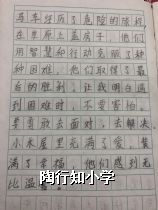 马车经历了危险的旅程,
在草原上盖房子。他们
用智慧和行动克服了种
种困难,他们取得了最
后的胜利。让我明白遇
到困难时,不要害怕,
要勇敢去面对,去解决。
小木屋里充满了爱,装
满了幸福,他们感到无
比温暖。
陶行知小学